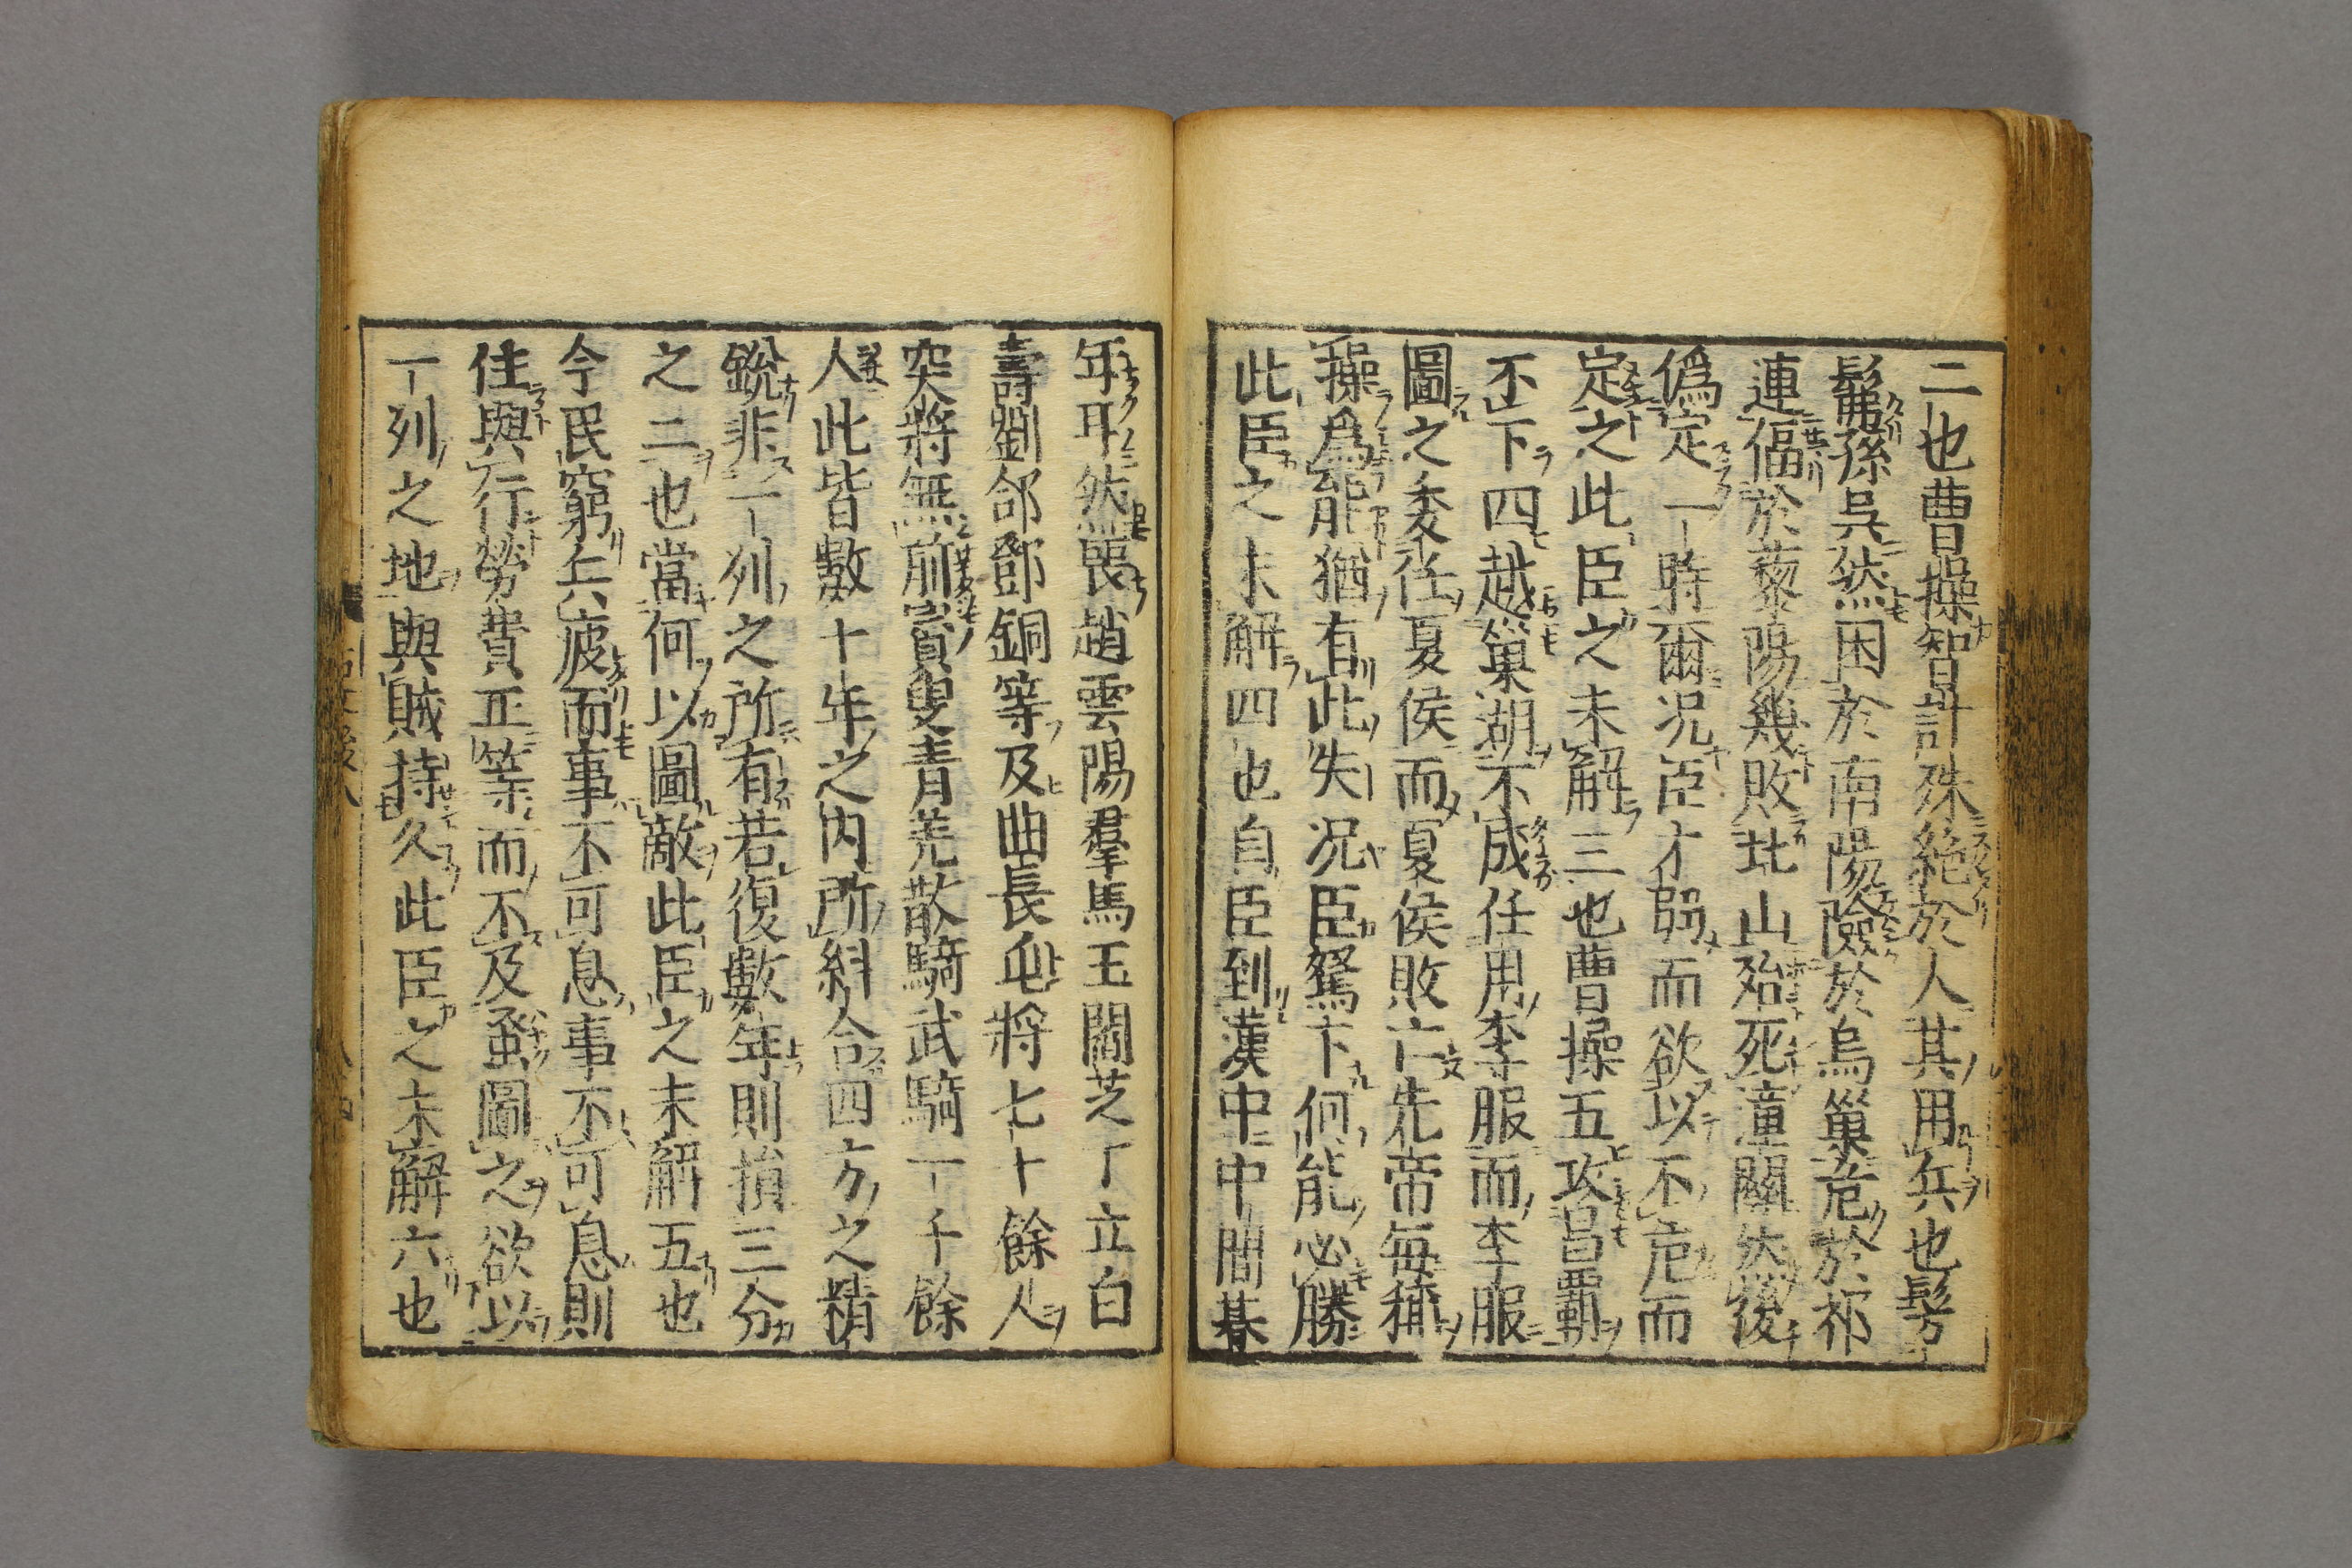 二也曹操智計殊絶於人其用兵也髣
髴孫吳然困於南陽險於烏巢危於祁
連偪於藜陽幾敗北山殆死潼關然後
僞定一時爾况臣才弱而欲以不危而
定之此臣之未解三也曹操五攻昌覇
不下四越巢湖不成任用李服而李服
圖之委任夏侯而夏侯敗亡先帝每稱
操爲能猶有此失况臣駑下何能必勝
此臣之未解四也自臣到漢中中間朞
年耳然喪趙雲陽羣馬玉閻芝丁立白
壽劉郃鄧銅等及曲長屯將七十餘人
突將無前賨叟青羌散騎武騎一千餘
人此皆數十年之内所糾合四方之精
銳非一州之所有若復數年則損三分
之二也當何以圖敵此臣之未解五也
今民窮兵疲而事不可息事不可息則
住與行勞費正等而不及蚤圖之欲以
一州之地與賊持久此臣之未解六也